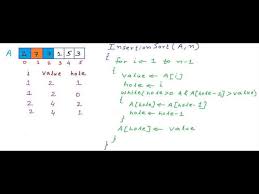 A 2 7 7 1 5 3
0 1 2 3 4 5
i value hole
1 2 1
1 2 0
2 4 2
2 4 1
InsertionSort(A,n)
{
for i ← 1 to n-1
{
value ← A[i]
hole ← i
while(hole>0 && A[hole-1]>value)
{
A[hole] ← A[hole-1]
hole ← hole-1
}
A[hole] ← value
}
}